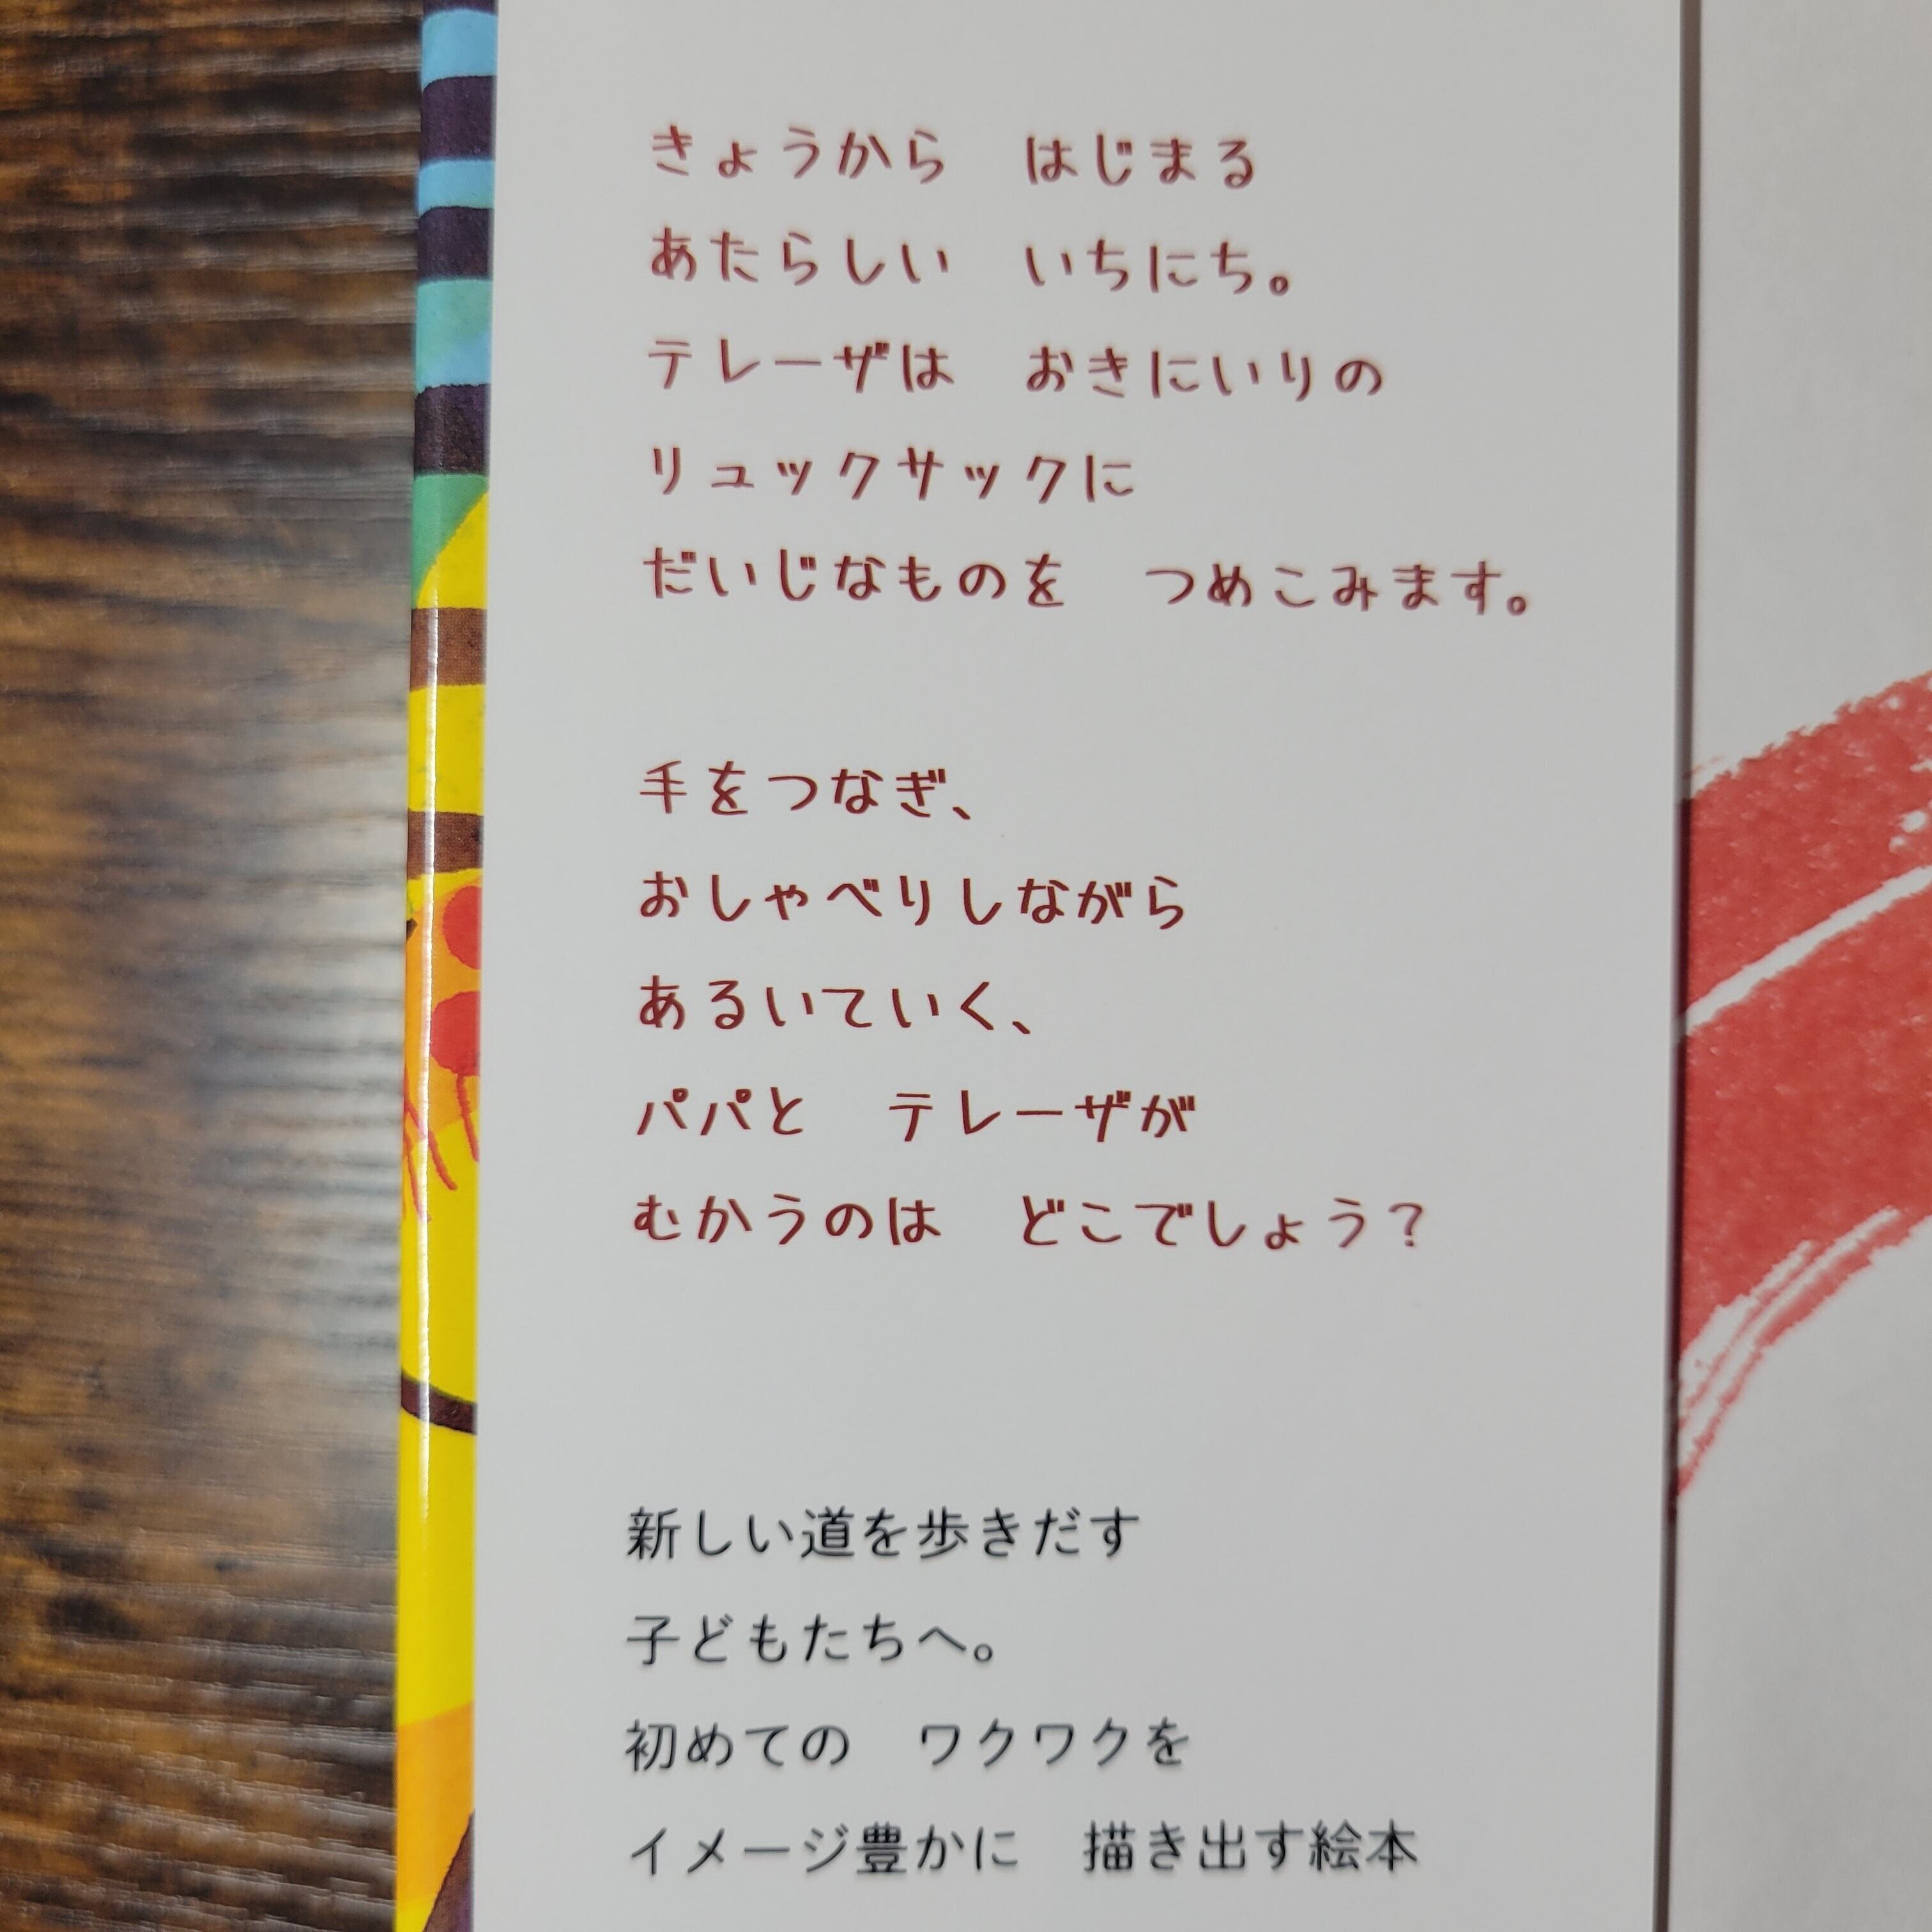 きょうから　はじまる
あたらしい　いちにち。
テレーザは　おきにいりの
リュックサックに
だいじなものを　つめこみます。
手をつなぎ、
おしゃべりしながら
あるいていく、
パパと　テレーザが
むかうのは　どこでしょう？
新しい道を歩きだす
子どもたちへ。
初めての　ワクワクを
イメージ豊かに　描き出す絵本